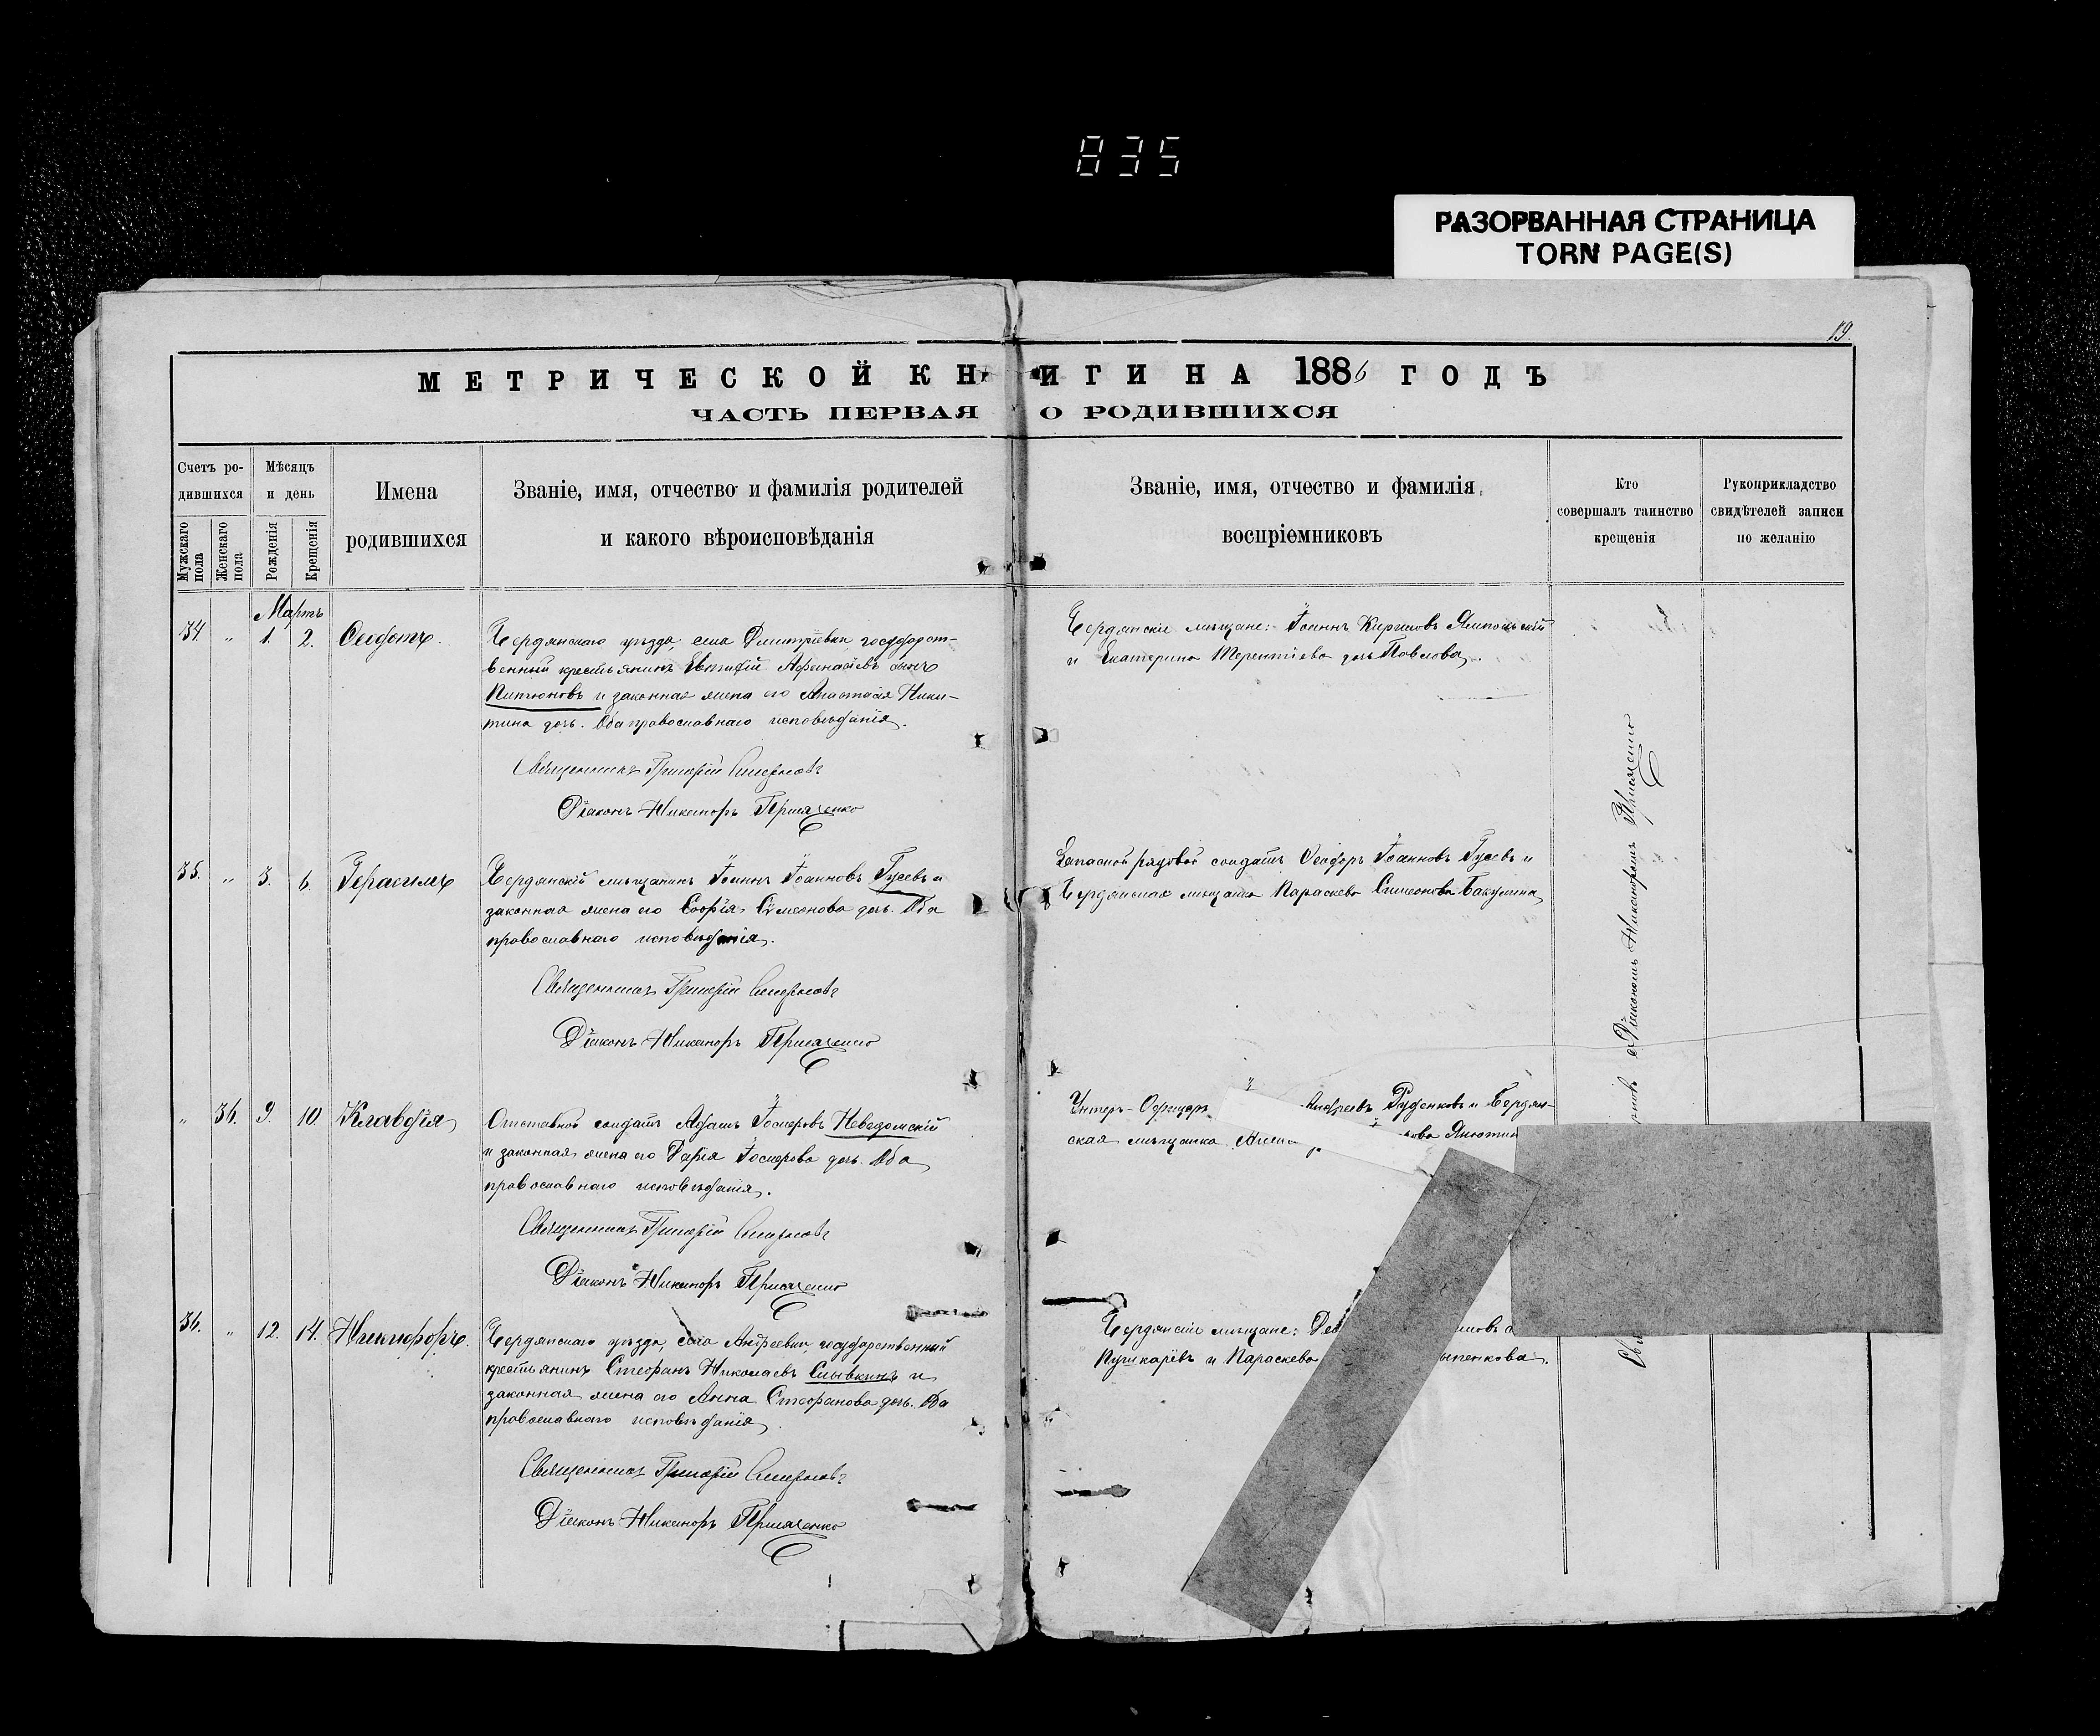 835
РАЗОРВАННАЯ СТРАНИЦА
TORN PAGE(S)
19.
МЕТРИЧЕСКОЙ КНИГИ НА 1886 ГОДЪ
ЧАСТЬ ПЕРВАЯ О РОДИВШИХСЯ
Счетъ ро-
дившихся
Мужскаго пола
Женскаго пола
Мѣсяцъ
и день
Рожденія
Крещенія
Имена
родившихся
Званіе, имя, отчество и фамилія родителей
и какого вѣроисповѣданія
Званіе, имя, отчество и фамилія
воспріемниковъ
Кто
совершалъ таинство
крещенія
Рукоприкладство
свидѣтелей записи
по желанію
Мартъ
34. " 1. 2.
Бердянскаго уѣзда, села Дмитріевки, государст-
венный крестьянинъ Евтихій Афанасіевъ сынъ
и законная жена его Анастасія Ники-
тина дочь. Оба православнаго исповѣданія.
Священникъ Григорій Смирновъ
Діаконъ Никаноръ
Бердянскіе мѣщане: Іоаннъ Кириловъ
и Екатерина Терентіева дочь Павлова.
35. " 3. 6. Герасимъ
Бердянскій мѣщанинъ Іоаннъ Іоанновъ Гусевъ и
законная жена его Софія Сѵмеонова дочь. Оба
православнаго исповѣданія.
Священникъ Григорій Смирновъ
Діаконъ Никаноръ
Запасной рядовой солдатъ Ѳеодоръ Іоанновъ Гусевъ и
Бердянская мѣщанка Параскева Симеонова Бакулина
" 36. 9. 10. Клавдія
Отставной солдатъ Адамъ Іосифовъ Неведомскій
и законная жена его Дарія Іосифова дочь. Оба
православнаго исповѣданія.
Священникъ Григорій Смирновъ
Діаконъ Никаноръ
Унтеръ-Офицеръ Андреевъ Руденковъ и Бердян-
ская мѣщанка
36. " 12. 14. Никифоръ.
Бердянскаго уѣзда, села Андреевки, государственный
крестьянинъ Стефанъ Николаевъ Слывкинъ и
законная жена его Анна Стефанова дочь. Оба
православнаго исповѣданія.
Священникъ Григорій Смирновъ
Діаконъ Никаноръ
Бердянскіе мѣщане:
Пушкарёвъ и Параскева
Діакономъ Никаноромъ